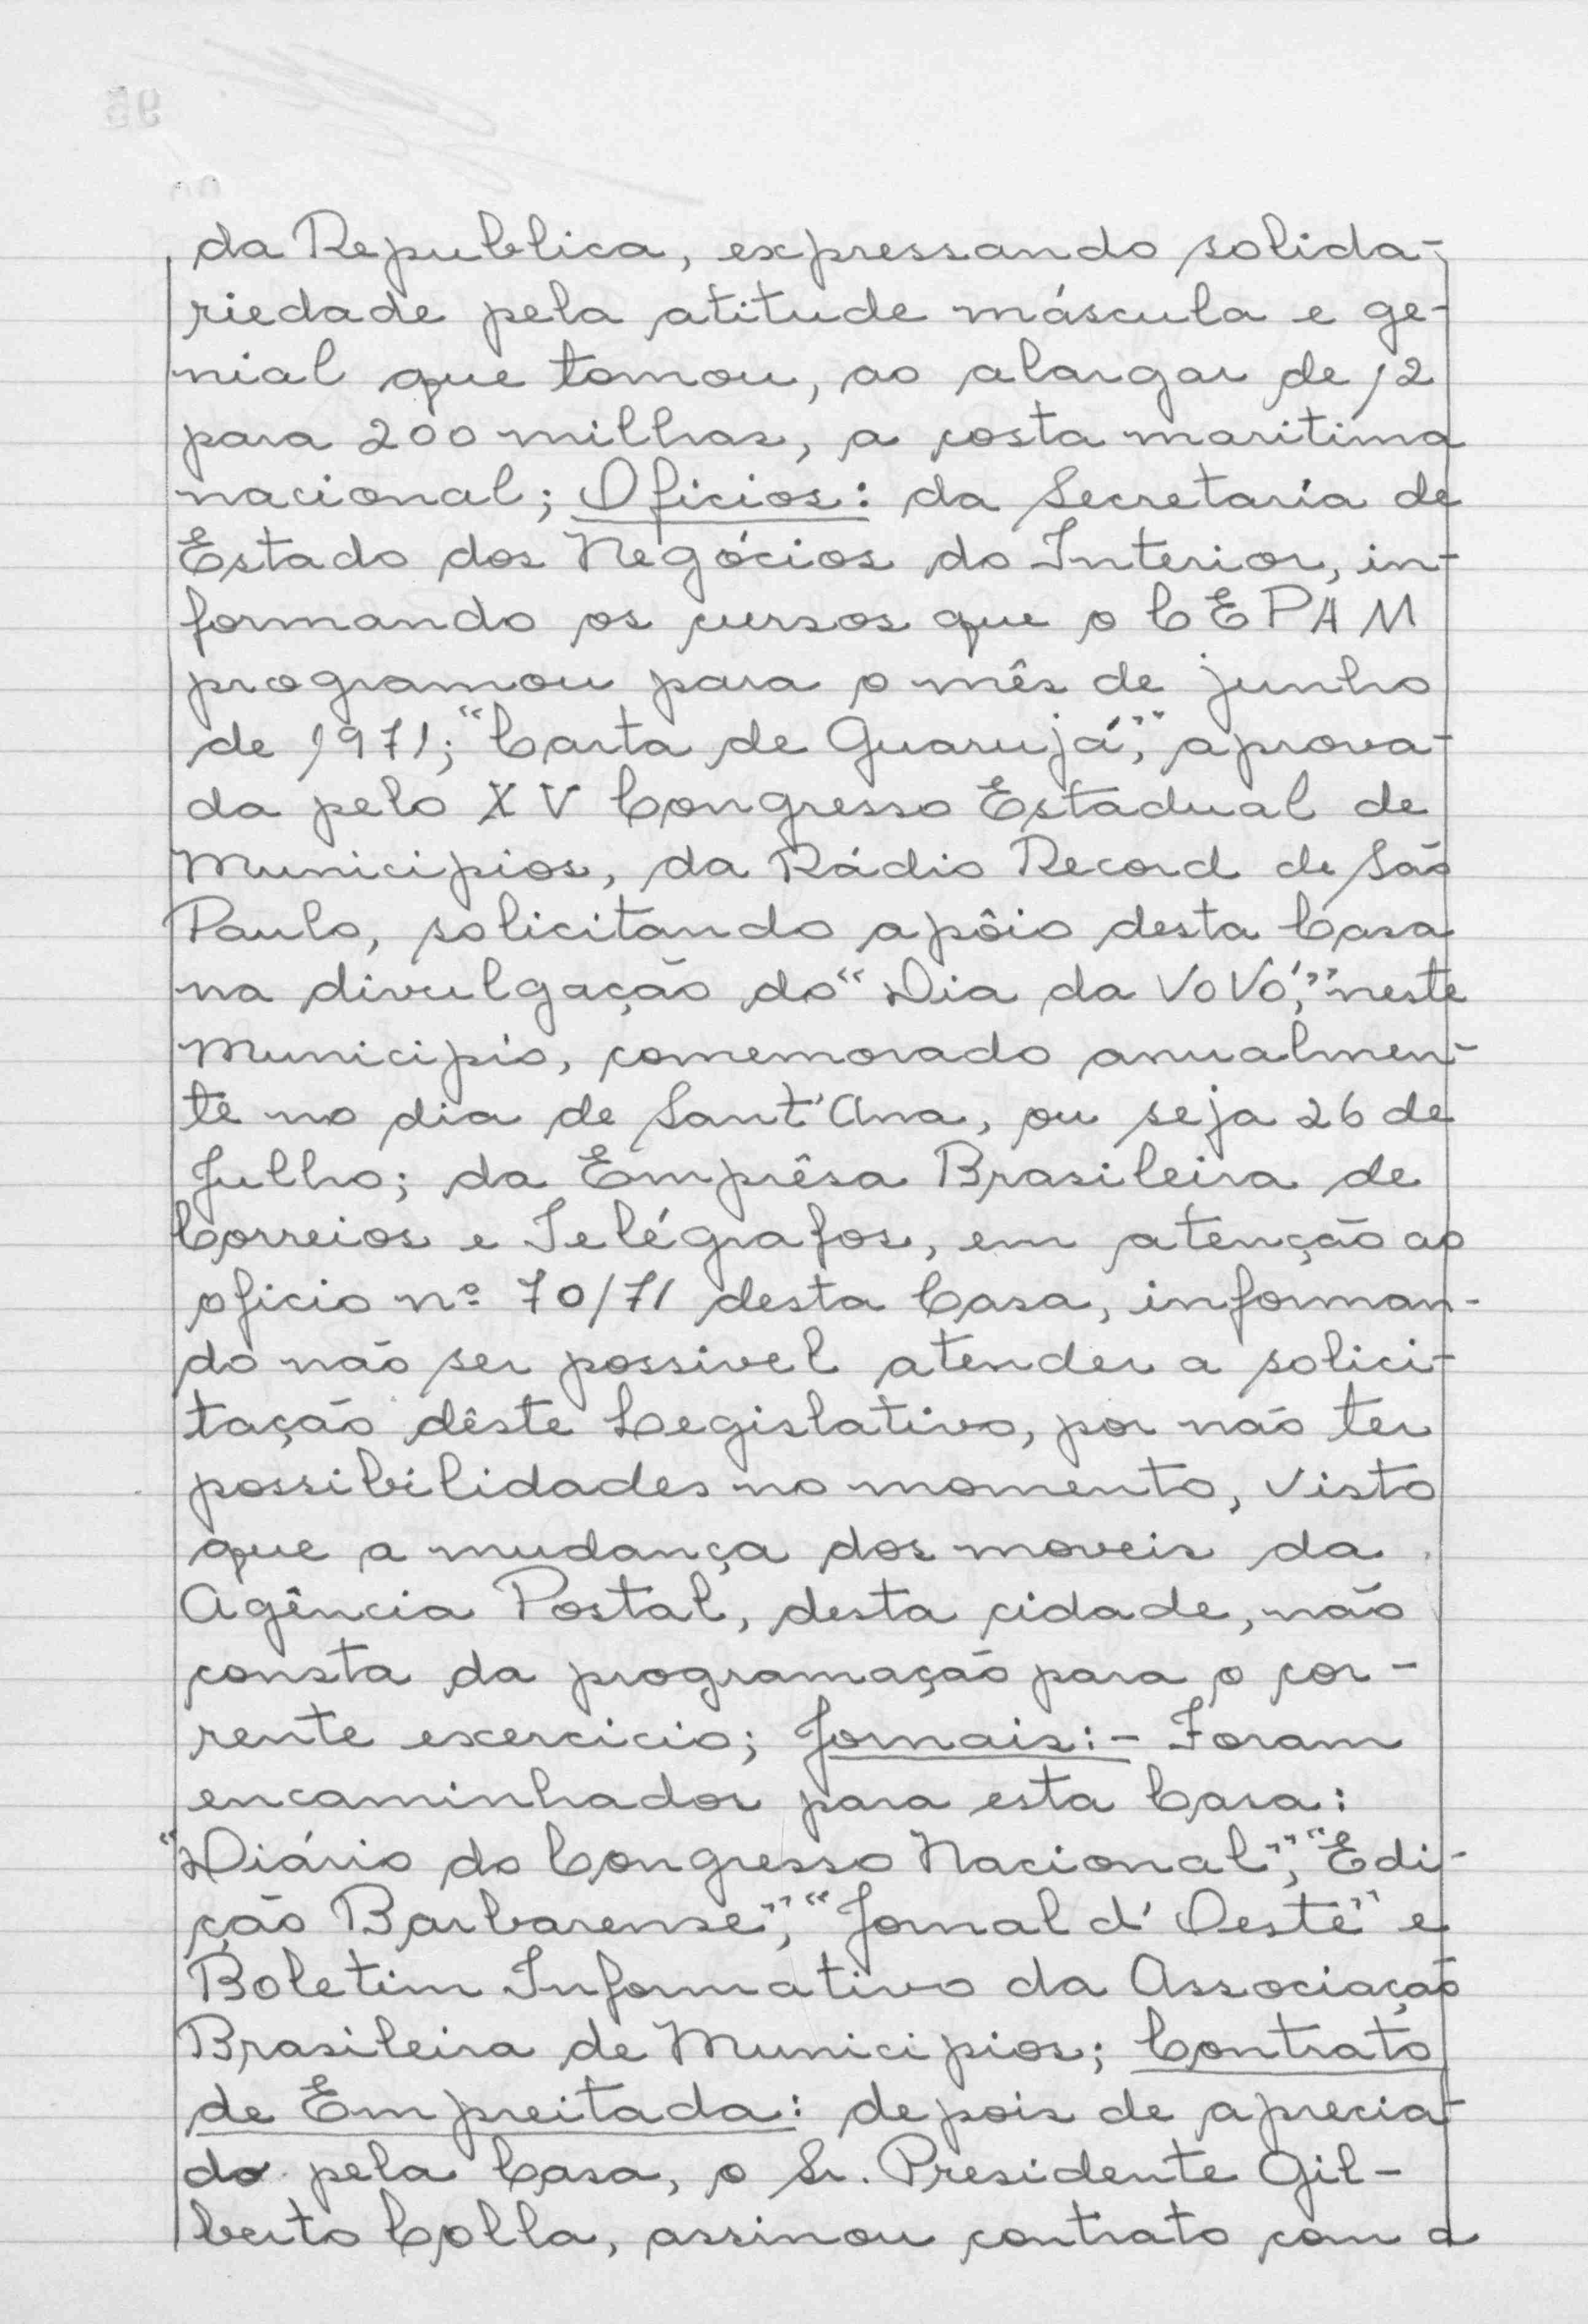 da Republica, expressando solida-
riedade pela atitude máscula e ge-
nial que tomou, ao alargar de 12
para 200 milhas, a costa maritima
nacional; Oficios: da Secretaria de
Estado dos Negócios do Interior, in-
formando os cursos que o CEPAM
programou para o mês de junho
de 1971; "Carta de Guarujá", aprova-
da pelo XV Congresso Estadual de
Municipios, da Rádio Record de São
Paulo, solicitando apôio desta Casa
na divulgação do "Dia da VoVó", neste
Municipio, comemorado anualmen-
te no dia de Sant'Ana, ou seja 26 de
Julho; da Emprêsa Brasileira de
Correios e Telégrafos, em atenção ao
oficio nº 70/71 desta Casa, informan-
do não ser possivel atender a solici-
tação dêste Legislativo, por não ter
possibilidades no momento, visto
que a mudança dos moveis da
Agência Postal, desta cidade, não
consta da programação para o cor-
rente exercicio; Jornais:- Foram
encaminhados para esta Casa:
"Diário do Congresso Nacional", "Edi-
ção Barbarense", "Jornal d'Oeste" e
Boletim Informativo da Associação
Brasileira de Municipios; Contrato
de Empreitada: depois de aprecia-
do pela Casa, o Sr. Presidente Gil-
berto Colla, assinou contrato com a